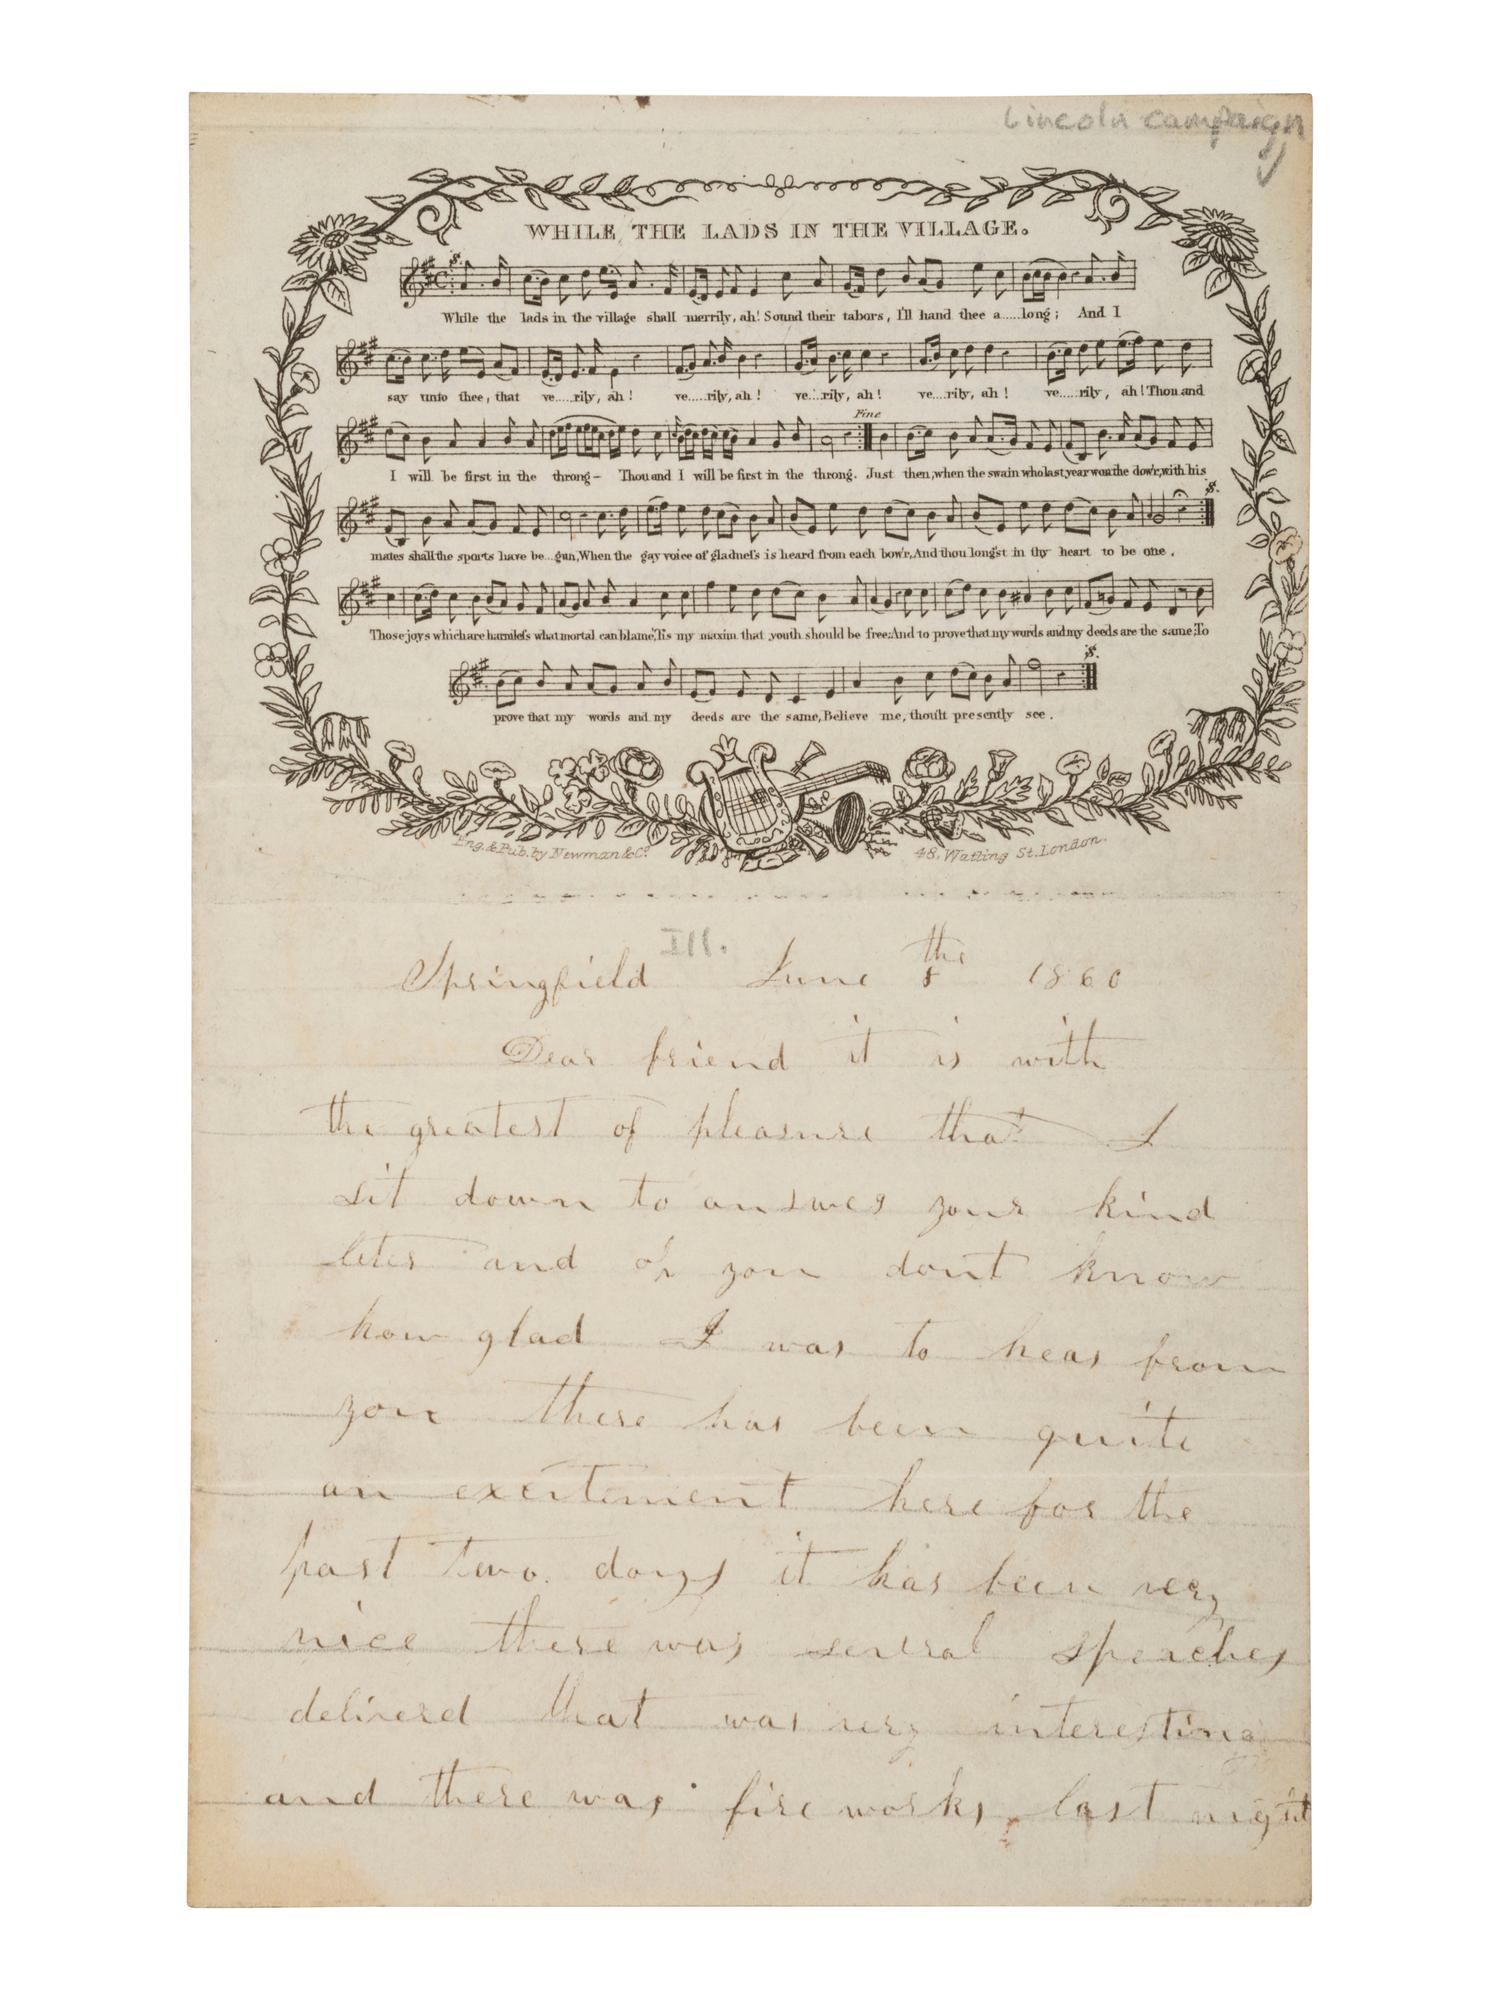 Lincoln campaign
WHILE THE LADS IN THE VILLAGE.
While the lads in the village shall merrily, ah! Sound their tabors, I'll hand thee a.....long; And I
say unto thee, that ve.....rily, ah! ve.....rily, ah! ve....rily, ah! ve....rily, ah! ve.....rily, ah! Thou and
Fine
I will be first in the throng– Thou and I will be first in the throng. Just then, when the swain who last year won the dow'r, with his
mates shall the sports have be...gun, When the gay voice of gladneſs is heard from each bow'r, And thou long'st in thy heart to be one.
Those joys which are harmleſs what mortal can blame, 'Tis my maxim that youth should be free: And to prove that my words and my deeds are the same; To
prove that my words and my deeds are the same, Believe me, thou'lt presently see.
Eng. & Pub. by Newman & Co. 48, Watling St. London.
Springfield Ill. June 8 the 1860
Dear friend it is with
the greatest of pleasure that I
sit down to answer your kind
leter and oh you dont know
how glad I was to hear from
you there has been quite
an exeitement here for the
past two days it has been very
nice there was several speaches
deliverd that was very interesting
and there was fire works last night